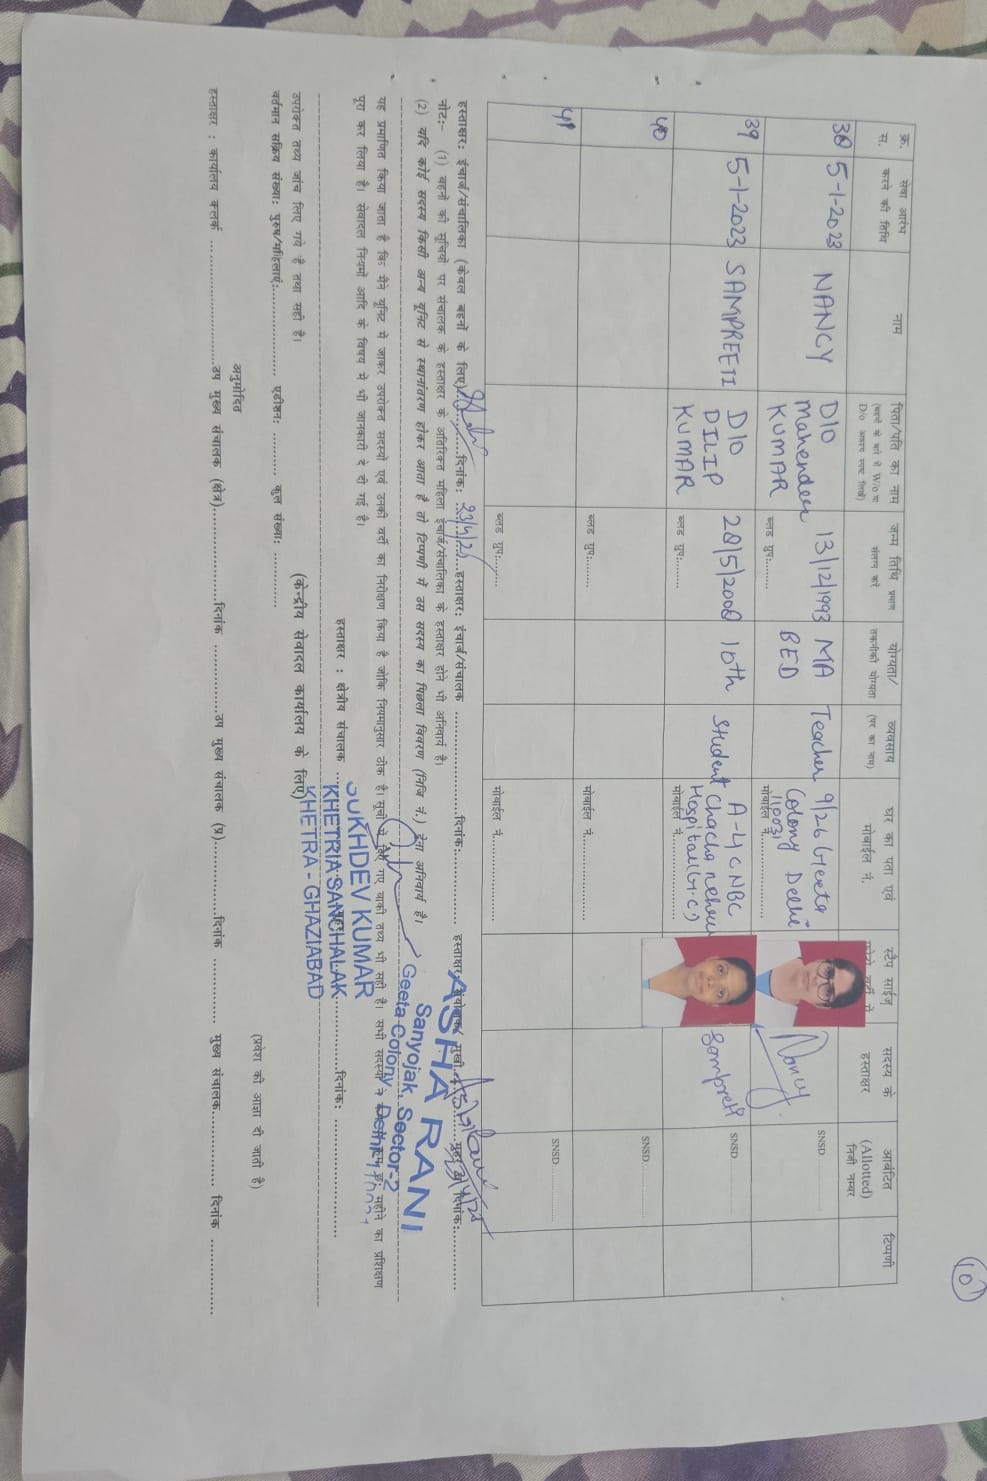 10
क्र. स.
सेवा आरंभ करने की तिथि
नाम
पिता/पति का नाम
(बहनों के बारे में W/o या D/o अवश्य स्पष्ट लिखें)
जन्म तिथि प्रमाण संलग्न करें
योग्यता/ तकनीकी योग्यता
व्यवसाय
(पद का नाम)
घर का पता एवं मोबाईल नं.
स्टैंप साईज
सदस्य के हस्ताक्षर
आबंटित (Allotted) निजी नम्बर
टिप्पणी
38 5-1-2023 NANCY D/O Mahender KUMAR 13/12/1993 MA BED Teacher 9/26 Geeta Colony Delhi Nancy SNSD
ब्लड ग्रुप:....... मोबाईल नं...............
39 5-1-2023 SAMPREETI D/O DILIP KUMAR 10th Student A-4 CNBC Chacha nehru Hospital (G.C) SNSD
ब्लड ग्रुप:....... मोबाईल नं...............
40
ब्लड ग्रुप:....... मोबाईल नं............... SNSD
41
ब्लड ग्रुप:....... मोबाईल नं............... SNSD
हस्ताक्षर: इंचार्ज/संचालिका (केवल बहनों के लिए) दिनांक: हस्ताक्षर: इंचार्ज/संचालक ............... दिनांक:...............
नोट:- (1) बहनों की सूचियों पर संचालक के हस्ताक्षर के अतिरिक्त महिला इंचार्ज/संचालिका के हस्ताक्षर होने भी अनिवार्य है।
(2) यदि कोई सदस्य किसी अन्य यूनिट से स्थानांतरण होकर आता है तो टिप्पणी में उस सदस्य का पिछला विवरण (निजि नं.) देना अनिवार्य है।
ASHA RANI
Sanyojak, Sector-2
Geeta Colony, Delhi
यह प्रमाणित किया जाता है कि मैंने यूनिट में जाकर उपरोक्त सदस्यों एवं उनकी वर्दी का निरीक्षण किया है जोकि नियमानुसार ठीक है। सूची में दिए गए बाकी तथ्य भी सही है। सभी सदस्यों ने महीने का प्रशिक्षण
पूरा कर लिया है। सेवादल नियमों आदि के विषय में भी जानकारी दे दी गई है।
हस्ताक्षर : क्षेत्रीय संचालक ............... दिनांक: ...............
SUKHDEV KUMAR
KHETRIA SANCHALAK
KHETRA - GHAZIABAD
(केन्द्रीय सेवादल कार्यालय के लिए)
उपरोक्त तथ्य जांच लिए गये है तथा सही है।
वर्तमान सक्रिय संख्या: पुरुष/महिलाएं:............... एडीशन: ............ कुल संख्या: ............
अनुमोदित
(प्रवेश की आज्ञा दी जाती है)
हस्ताक्षर : कार्यालय क्लर्क ...............उप मुख्य संचालक (क्षेत्र)...............दिनांक ...............उप मुख्य संचालक (प्र)...............दिनांक ............... मुख्य संचालक............... दिनांक ...............